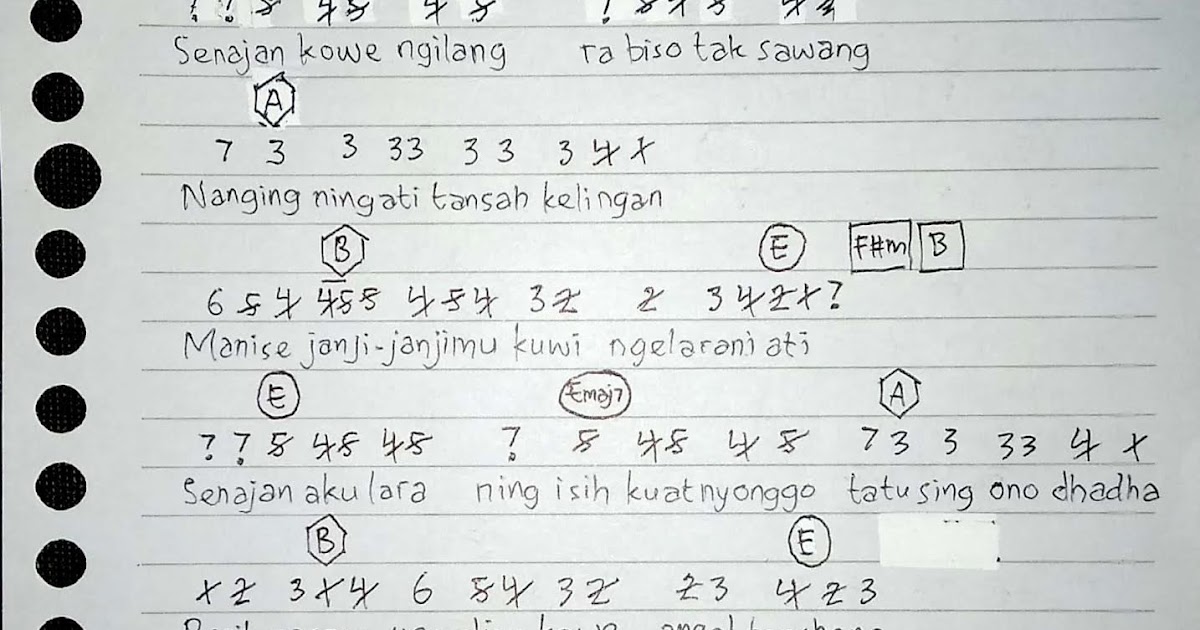 Senajan kowe ngilang ra biso tak sawang
A
7 3 3 33 3 3 3 4 x
Nanging ning ati tansah kelingan
B E F#m B
6 5 4 455 454 32 2 342x?
Manise janji-janjimu kuwi ngelarani ati
E Emaj7 A
? ? 5 45 45 ? 5 45 4 5 7 3 3 33 4 x
Senajan aku lara ning isih kuat nyonggo tatu sing ono dhadha
B E
x 2 3x4 6 54 32 23 4 2 3